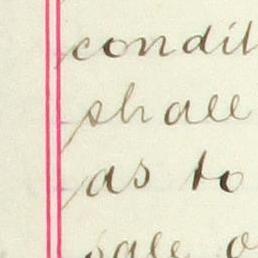 condit
shall
as to
sale o